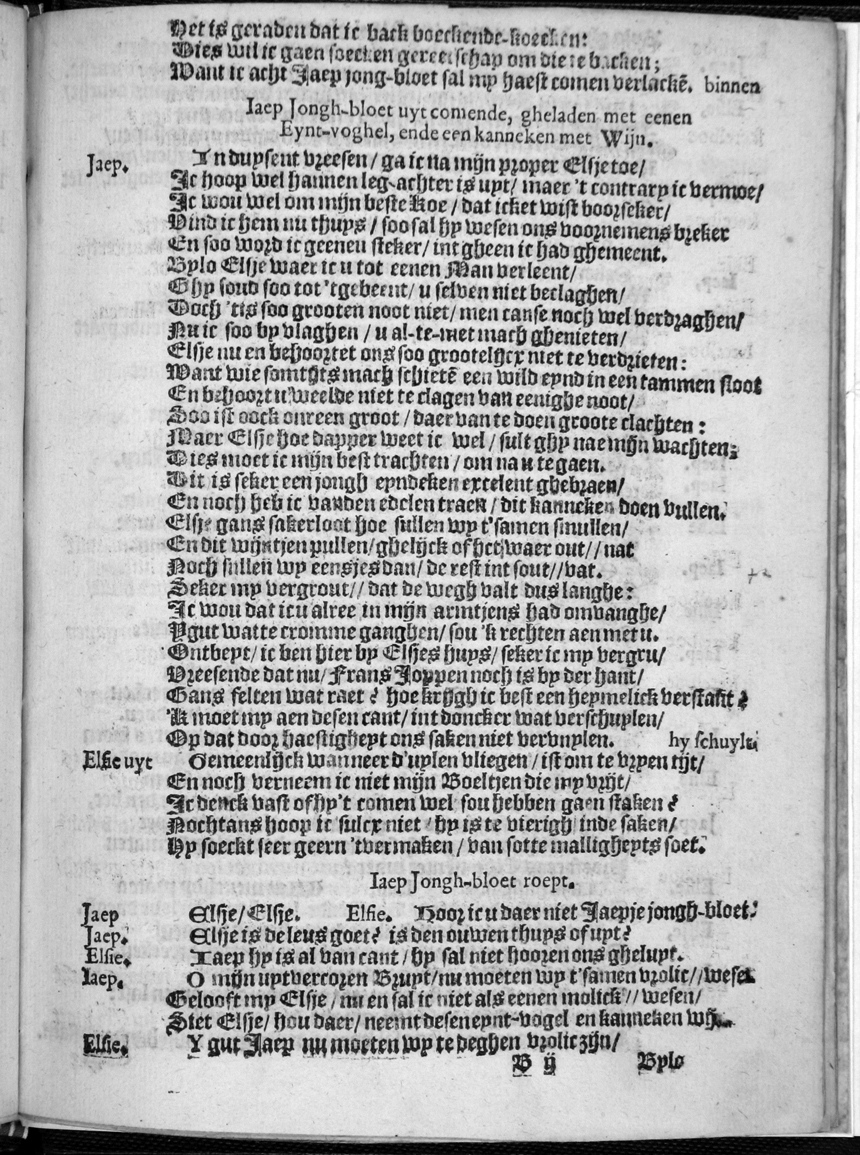 Het is geraden dat ic back boeckende-koecken:
Dies wil ic gaen soecken gereetschap om die te backen;
Want ic acht Jaep jong-bloet sal my haest comen verlackē. binnen
Iaep Jongh-bloet uyt comende, gheladen met eenen
Eynt-voghel, ende een kanneken met Wijn.
Jaep. In duysent vreesen / ga ic na mijn proper Elsje toe/
Ic hoop wel hannen leg-achter is uyt/ maer 't contrary ic vermoe/
Ic wou wel om mijn beste Koe / dat icket wist voorseker/
Vind ic hem nu thuys / soo sal hy wesen ons voornemens breker
En soo word ic geenen steker/ int gheen ic had ghemeent.
Bylo Elsje waer ic u tot eenen Man verleent/
Ghy soud soo tot 'tgebeent/ u selven niet beclaghen/
Doch 'tis soo grooten noot niet/ men canse noch wel verdraghen/
Nu ic soo by vlaghen / u al-te-met mach ghenieten/
Elsje nu en behoortet ons soo grootelijcx niet te verdrieten:
Want wie somtijts mach schietē een wild eynd in een tammen sloot
En behoort u weelde niet te clagen van eenighe noot/
Soo ist oock onreen groot / daer van te doen groote clachten:
Maer Elsje hoe dapper weet ic wel / sult ghy nae mijn wachten;
Dies moet ic mijn best trachten / om na u te gaen.
Dit is seker een jongh eyndeken excelent ghebraen/
En noch heb ic vanden edelen traen / dit kanneken doen vullen.
Elsje gans sakerloot hoe sullen wy t'samen smullen/
En dit wijntjen pullen/ ghelijck of het waer out// nat
Noch sullen wy eensjes dan/ de rest int sout//vat.
Seker my vergrout// dat de wegh valt dus langhe:
Ic wou dat ic u alree in mijn armtjens had omvanghe/
Ygut wat te cromme ganghen/ sou 'k rechten aen met u.
Ontbeyt/ ic ben hier by Elsjes huys/ seker ic my vergru/
Vreesende dat nu/ Frans Joppen noch is by der hant/
Gans felten wat raet? hoe krijgh ic best een heymelick verstant?
'K moet my aen desen cant/ int doncker wat verschuylen/
Op dat door haestigheyt ons saken niet vervuylen. hy schuylt
Elsie uyt Gemeenlijck wanneer d'uylen vliegen / ist om te vryen tijt/
En noch verneem ic niet mijn Boeltjen die my vrijt/
Ic denck vast of hy't comen wel sou hebben gaen staken?
Nochtans hoop ic sulcx niet / hy is te vierigh inde saken/
Hy soeckt seer geern 'tvermaken / van sotte malligheyts soet.
Iaep Jongh-bloet roept.
Jaep Elsje/ Elsje. Elsie. Hoor ic u daer niet Jaepje jongh-bloet?
Jaep. Elsje is de leus goet? is den ouwen thuys of uyt?
Elsie. Iaep hy is al van cant / hy sal niet hooren ons gheluyt.
Iaep. O mijn uytvercoren Bruyt/ nu moeten wy t'samen vrolic//wesen
Gelooft my Elsje / nu en sal ic niet als eenen molick// wesen/
Siet Elsje/ hou daer/ neemt desen eynt-vogel en kanneken wijn
Elsie. Y gut Jaep nu moeten wy te deghen vrolic zijn/
B ij Bylo